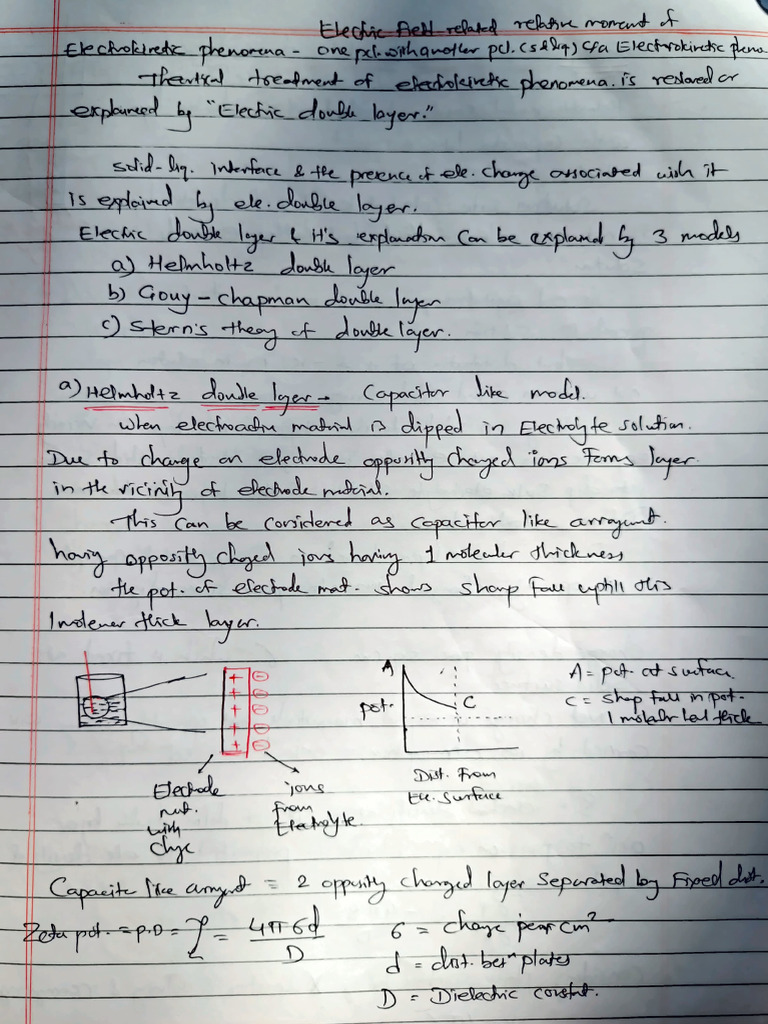 Electric field related relative moment of
Electrokinetic phenomena - one pcl. with another pcl. (s & liq) c/a Electrokinetic pheno.
Theortical treatment of electrokinetic phenomena. is restored or
explained by "Electric double layer."
solid-liq. interface & the presence of ele. charge associated with it
is explained by ele. double layer.
Electric double layer & It's explanation can be explained by 3 models
a) Helmholtz double layer
b) Gouy - chapman double layer
c) Stern's theory of double layer.
a) Helmholtz double layer - Capacitor like model.
when electroactive material is dipped in Electrolyte solution.
Due to charge on electrode oppositly charged ions forms layer
in the vicinity of electrode material.
This can be considered as capacitor like arrangment.
having oppositly charged ions having 1 molecular thickness
the pot. of electrode mat. shows sharp fall uptill this
1 molecular thick layer.
+ ⊖
+ ⊖
+ ⊖
+ ⊖
+ ⊖
A
pot.
C
Dist. From
Ele. Surface
A = pot. at surface
C = sharp fall in pot.
1 molalar thick
Electrode
mat.
with
charge
ions
from
Electrolyte.
Capacitor like arrangment = 2 oppositly charged layer separated by Fixed dist.
Zeta pot. = P.D = ζ = 4πσd / D
σ = charge pear cm²
d = dist. betⁿ plates
D = Dielectric constant.